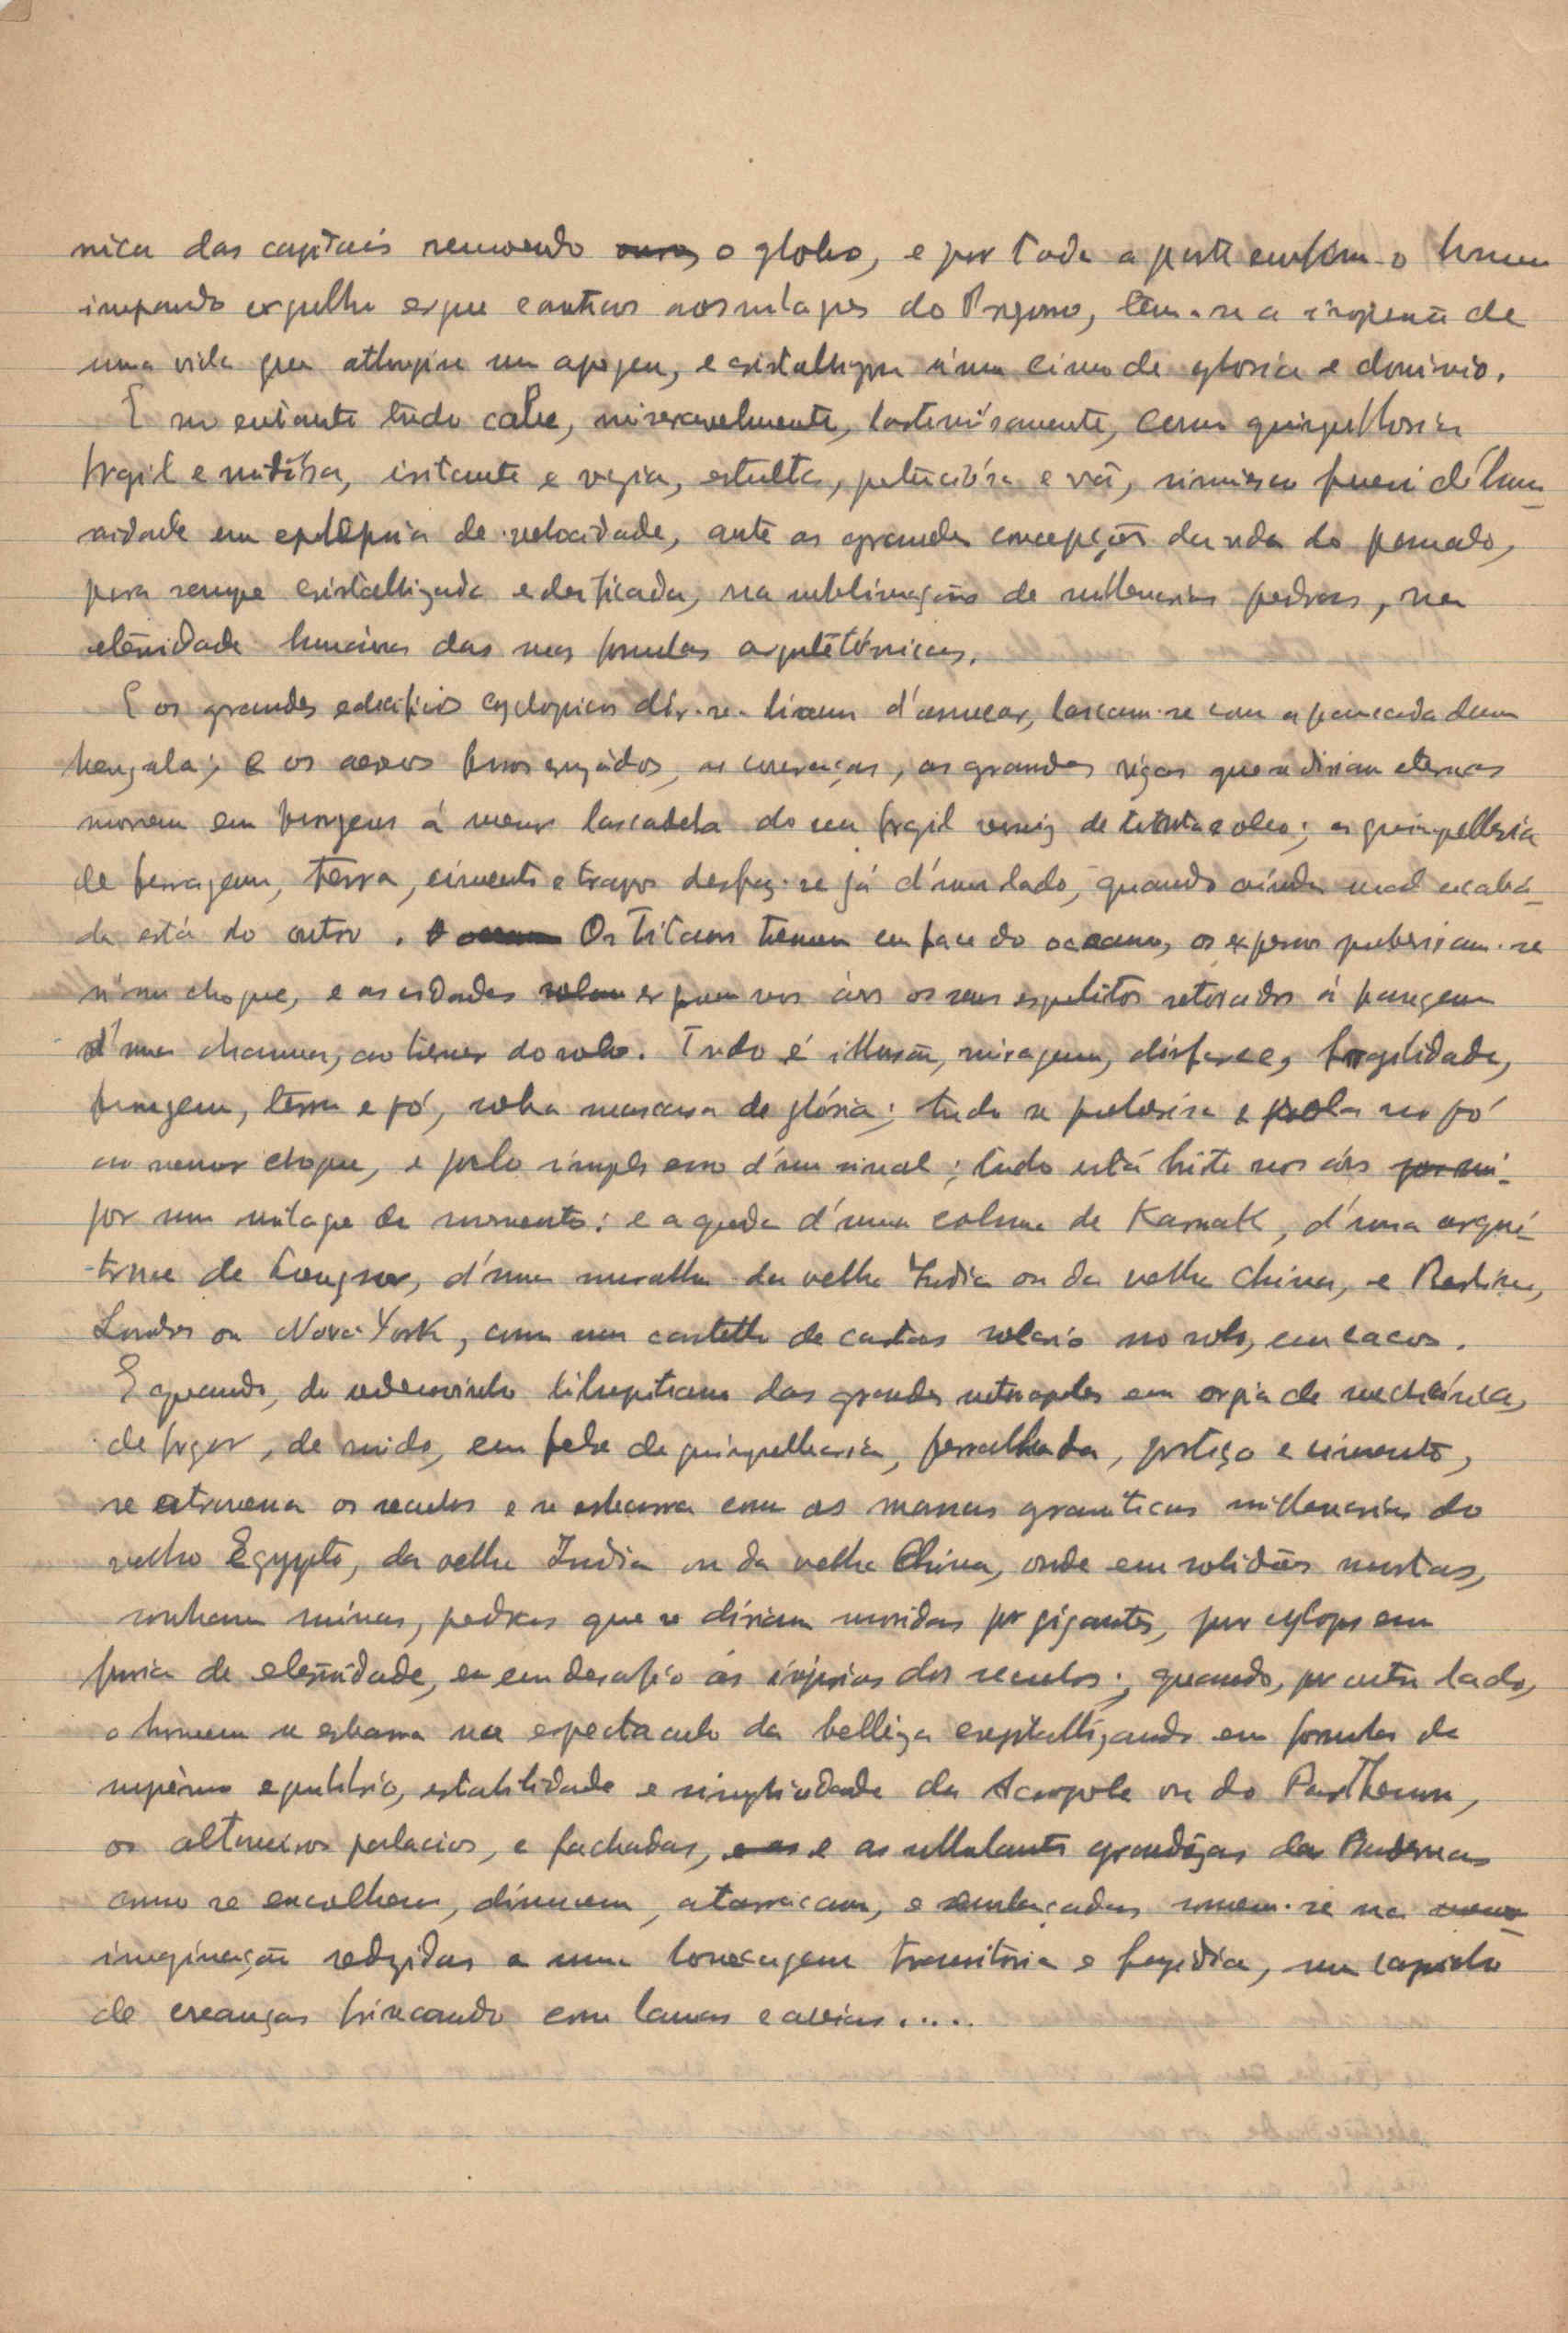 nica das capitais removendo o globo, e por toda a parte emfim o homem
impando orgulho ergue canticos aos milagres do Progresso, tem-se a impressão de
uma vida que attingiu um apogeu, e cristallizou n'um cimo de gloria e dominio.
E no entanto tudo cahe, miseravelmente, lastimósamente, como quinquilharia
fragil e ruidósa, irritante e vazia, estulta, pretenciósa e vã, d'hu-
manidade em epilépsia de velocidade, ante as grandes concepções da vida do passado,
para sempre cristallizada e deificada, na sublimação de millenarias pedras, na
eternidade das suas formulas arquitetónicas.
E os grandes edificios cyclopicos dir-se-hiam d'assucar, lascam-se com a pancada duma
bengala; e os aereos ferros erguidos, as couraças, as grandes vigas que se diriam eternas
morrem em ferrugem á menor lascadela do seu fragil verniz de tinta e oleo; a quinquilheria
de ferragem, terra, cimento e trapos desfaz-se já d'um lado, quando ainda mal acabá-
da está do outro. Os Titans tremem em face do oceano, os expressos pulverisam-se
n'um choque, e as cidades erguem nos áres os seus esqueletos retorcidos á passagem
d'uma chamma, ao tremer do solo. Tudo é illusão, miragem, disfarce, fragilidade,
ferrugem, terra e pó, sob a mascara de glória; tudo se pulverisa e rola no pó
ao menor choque, e pelo simples erro d'um sinal; tudo está hirto nos áres
por um milagre de momento: e a queda d'uma coluna de Karnak, d'uma arqui-
trave de Louqsor, d'uma muralha da velha India ou da velha China, e Berlim,
Londres ou Nova-York, como um castello de cartas rolará no solo, em cacos.
E quando, do redemoinho liliputiano das grandes metropoles em orgia de mechánica,
de fragor, de ruido, em febre de quinquilharia, ferralhada, postiço e cimento,
se atravessa os seculos e se esbarra com as massas graniticas millenarias do
velho Egypto, da velha India ou da velha China, onde em solidões mortas,
sonham ruinas, pedras que se diriam movidas por gigantes, por cyclops em
furia de eternidade, ou em desafio ás injurias dos seculos; quando, por outro lado,
o homem se esbarra no espectaculo da belleza crystallizando em formulas de
supremo equilibrio, estabilidade e simplicidade da Acropole ou do Parthenon,
os altaneiros palacios, e fachadas, e as ullulantes grandêzas das Modernas
como se encolhem, diminuem, atarracam, e somem-se na
imaginação reduzidas a uma bonecagem transitória e fugidia, um capricho
de creanças brincando com lamas e areias....